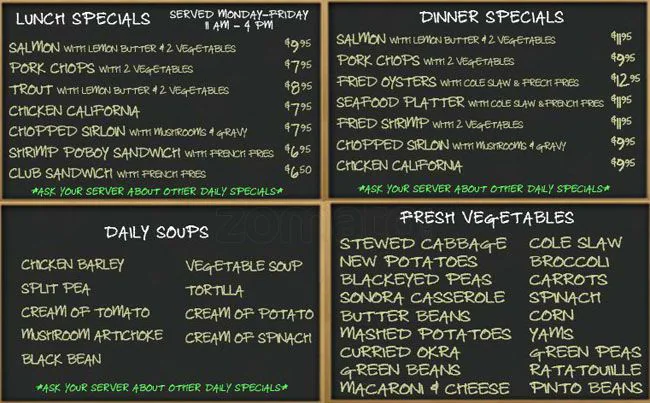 LUNCH SPECIALS
SERVED MONDAY-FRIDAY
11 AM - 4 PM
SALMON WITH LEMON BUTTER & 2 VEGETABLES $9.95
PORK CHOPS WITH 2 VEGETABLES $7.95
TROUT WITH LEMON BUTTER & 2 VEGETABLES $8.95
CHICKEN CALIFORNIA $7.95
CHOPPED SIRLOIN WITH MUSHROOMS & GRAVY $7.95
SHRIMP PO'BOY SANDWICH WITH FRENCH FRIES $6.95
CLUB SANDWICH WITH FRENCH FRIES $6.50
*ASK YOUR SERVER ABOUT OTHER DAILY SPECIALS*
DINNER SPECIALS
SALMON WITH LEMON BUTTER & 2 VEGETABLES $11.95
PORK CHOPS WITH 2 VEGETABLES $9.95
FRIED OYSTERS WITH COLE SLAW & FRECH FRIES $12.95
SEAFOOD PLATTER WITH COLE SLAW & FRENCH FRIES $11.95
FRIED SHRIMP WITH 2 VEGETABLES $11.95
CHOPPED SIRLOIN WITH MUSHROOMS & GRAVY $9.95
CHICKEN CALIFORNIA $9.95
*ASK YOUR SERVER ABOUT OTHER DAILY SPECIALS*
DAILY SOUPS
CHICKEN BARLEY
SPLIT PEA
CREAM OF TOMATO
MUSHROOM ARTICHOKE
BLACK BEAN
VEGETABLE SOUP
TORTILLA
CREAM OF POTATO
CREAM OF SPINACH
*ASK YOUR SERVER ABOUT OTHER DAILY SPECIALS*
FRESH VEGETABLES
STEWED CABBAGE
NEW POTATOES
BLACKEYED PEAS
SONORA CASSEROLE
BUTTER BEANS
MASHED POTATOES
CURRIED OKRA
GREEN BEANS
MACARONI & CHEESE
COLE SLAW
BROCCOLI
CARROTS
SPINACH
CORN
YAMS
GREEN PEAS
RATATOUILLE
PINTO BEANS